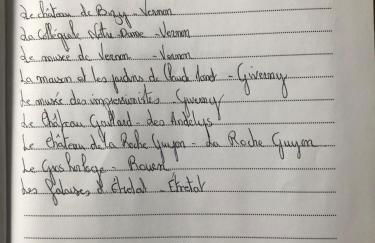 Le château de Bizy - Vernon
La Collégiale Notre Dame - Vernon
Le musée de Vernon - Vernon
La maison et les jardins de Claude Monet - Giverny
Le musée des impressionnistes - Giverny
Le Château Gaillard - des Andelys
Le château de la Roche Guyon - La Roche Guyon
Le Gros horloge - Rouen
Les falaises d'Étretat - Étretat